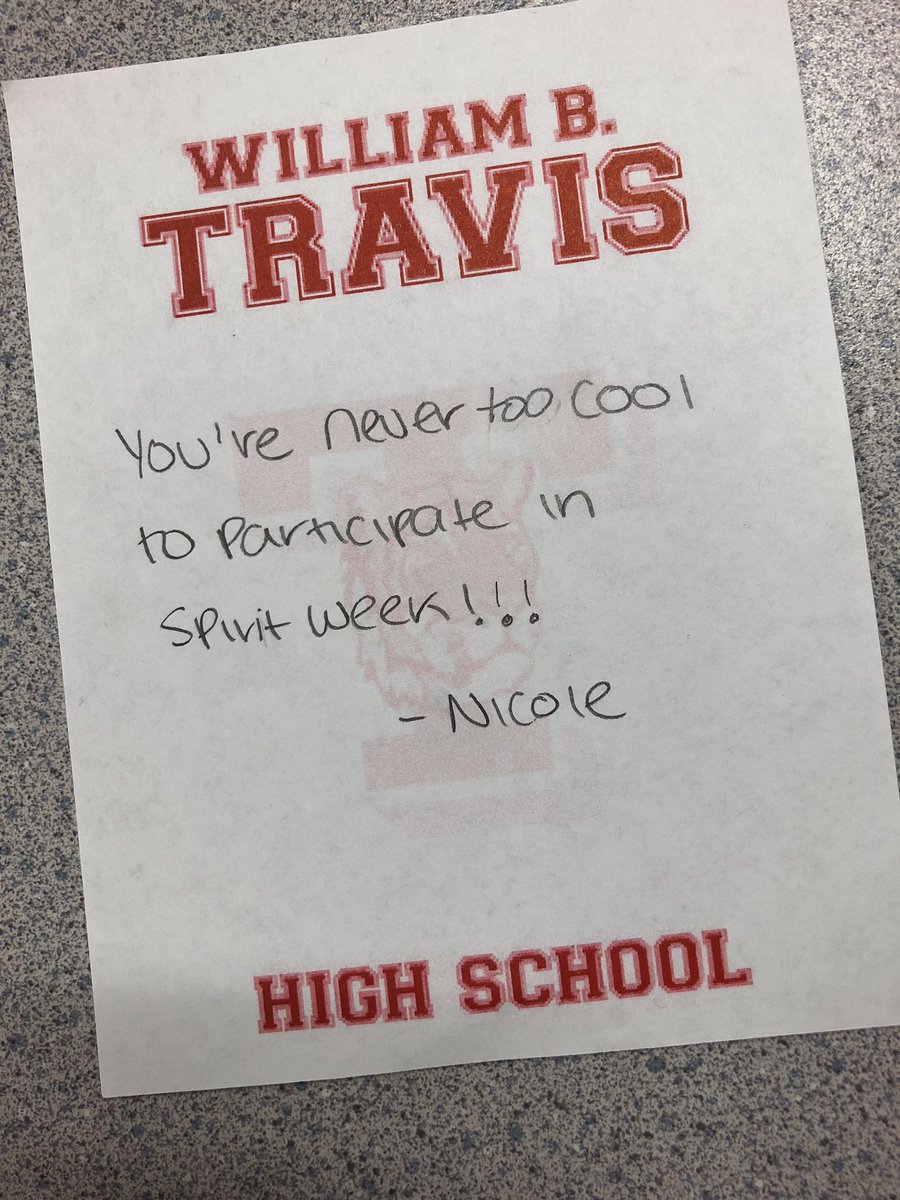 WILLIAM B.
TRAVIS
You're never too cool
to participate in
spirit week!!!
- Nicole
HIGH SCHOOL